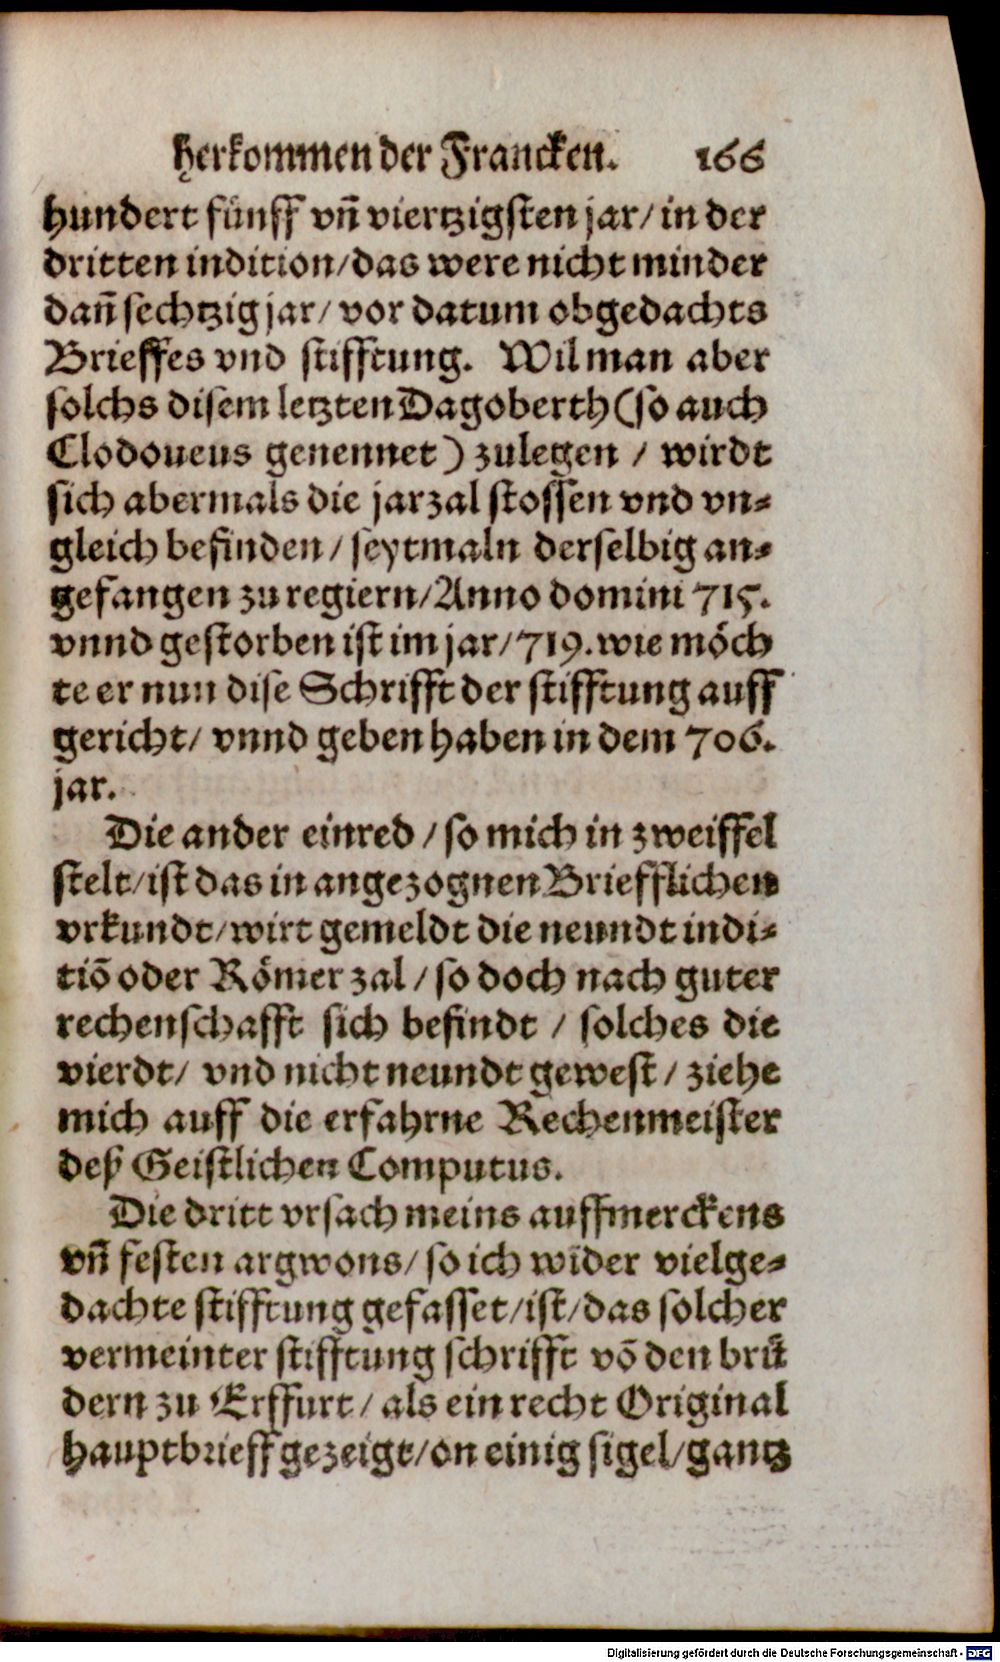 Herkommen der Francken. 166
hundert fünff vñ viertzigsten jar/ in der
dritten indition/das were nicht minder
dañ sechtzig jar/ vor datum obgedachts
Brieffes vnd stifftung. Wil man aber
solchs disem letzten Dagoberth (so auch
Clodoueus genennet) zulegen / wirdt
sich abermals die jarzal stossen vnd vn-
gleich befinden/ seytmaln derselbig an-
gefangen zu regiern/Anno domini 715.
vnnd gestorben ist im jar/719. wie möch
te er nun dise Schrifft der stifftung auff
gericht/ vnnd geben haben in dem 706.
jar.
Die ander einred / so mich in zweiffel
stelt/ist das in angezognen Briefflichen
vrkundt/wirt gemeldt die neundt indi-
tiõ oder Römer zal / so doch nach guter
rechenschafft sich befindt / solches die
vierdt/ vnd nicht neundt gewest / ziehe
mich auff die erfahrne Rechenmeister
deß Geistlichen Computus.
Die dritt vrsach meins auffmerckens
vñ festen argwons/ so ich wider vielge-
dachte stifftung gefasset/ist/das solcher
vermeinter stifftung schrifft võ den brü
dern zu Erffurt/ als ein recht Original
hauptbrieff gezeigt/on einig sigel/gantz
Digitalisierung gefördert durch die Deutsche Forschungsgemeinschaft - DFG